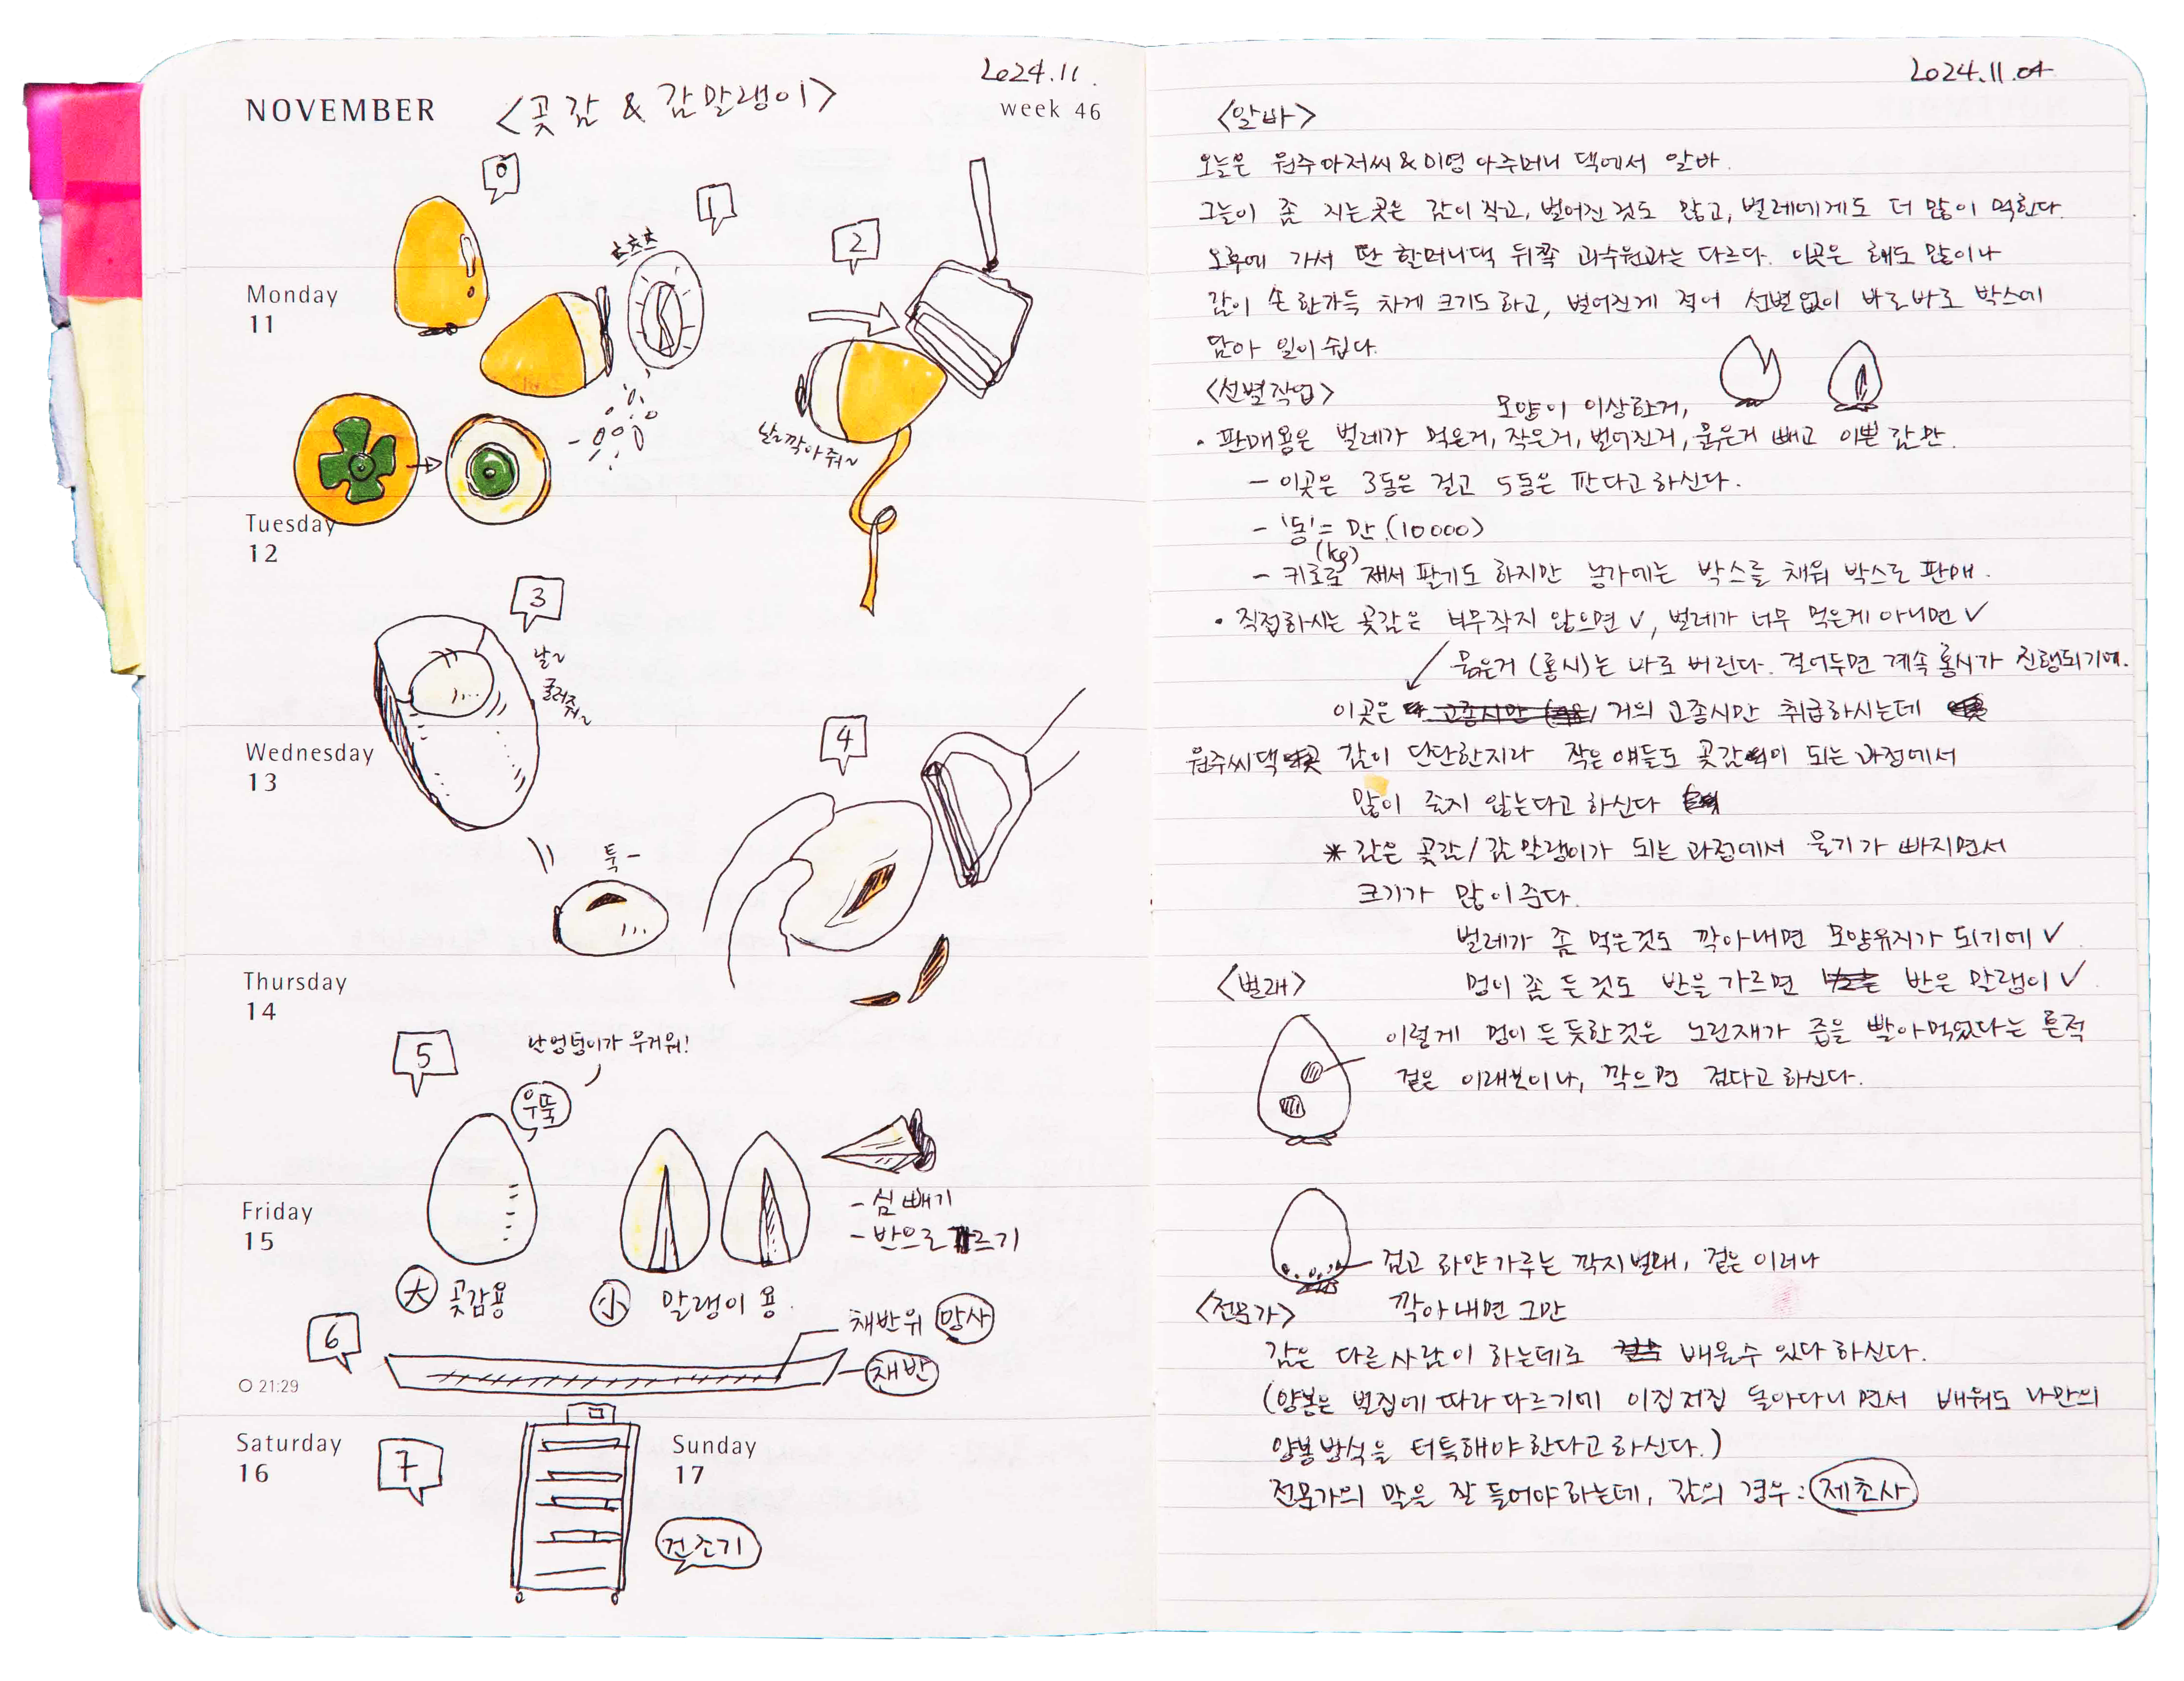 2024.11.
NOVEMBER
<곶감 & 감말랭이>
week 46
0
1
스스스
2
Monday
11
날깍아줘~
Tuesday
12
3
날~
굴러줘~
Wednesday
13
4
툭-
Thursday
14
5
난 엉덩이가 무거워!
우뚝
Friday
15
- 심 빼기
- 반으로 가르기
大 곶감용
小 말랭이 용.
채반위 망사
6
채반
21:29
Saturday
16
7
Sunday
17
건조기
2024.11.04
<알바>
오늘은 원주아저씨&미영 아주머니 댁에서 알바.
그늘이 좀 지는 곳은 감이 작고, 벌어진 것도 많고, 벌레에게도 더 많이 먹힌다.
오후에 가서 딴 할머니댁 뒤쪽 과수원과는 다르다. 이곳은 해도 많이나
감이 손 한가득 차게 크기도 하고, 벌어진게 적어 선별없이 바로바로 박스에
담아 일이 쉽다.
<선별작업>
모양이 이상한거,
· 판매용은 벌레가 먹은거, 작은거, 벌어진거, 묽은거 빼고 이쁜 감만.
- 이곳은 3동은 걸고 5동은 판다고 하신다.
- '동' = 만 (10000)
(kg)
- 키로로 재서 팔기도 하지만 농가에는 박스를 채워 박스로 판매.
· 직접하시는 곶감은 너무작지 않으면 ✓, 벌레가 너무 먹은게 아니면 ✓
묽은거 (홍시)는 바로 버린다. 걸어두면 계속 홍시가 진행되기에.
이곳은 거의 고종시만 취급하시는데
원주씨댁 감이 단단한지라 작은 얘들도 곶감이 되는 과정에서
많이 줄지 않는다고 하신다
* 감은 곶감/감말랭이가 되는 과정에서 물기가 빠지면서
크기가 많이 준다.
벌레가 좀 먹은것도 깍아내면 모양유지가 되기에 ✓
<벌래>
멍이 좀 든것도 반을 가르면 반은 말랭이 ✓
이렇게 멍이 든 듯한것은 노린재가 즙을 빨아먹었다는 흔적
겉은 이래보이나, 깍으면 검다고 하신다.
검고 하얀가루는 깍지벌래, 겉은 이러나
깍아내면 그만
<전문가>
감은 다른사람이 하는데로 배울수 있다 하신다.
(양봉은 벌집에 따라 다르기에 이집저집 돌아다니면서 배워도 나만의
양봉방식을 터득해야한다고 하신다.)
전문가의 말을 잘 들어야하는데, 감의 경우: 제초사